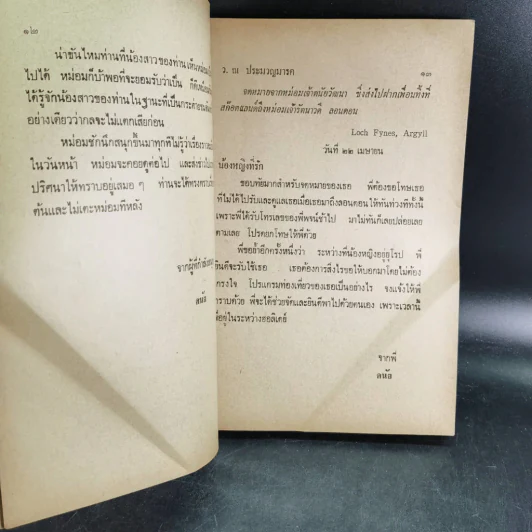 ๑๒
น่าขันไหมท่านที่น้องสาวของท่านเห็นหม่อม
ไปได้ หม่อมก็บ้าพอที่จะยอมรับว่าเป็น
ได้รู้จักน้องสาวของท่านในฐานะที่เป็น
อย่างเดียวว่ากลจะไม่แตกเสียก่อน
หม่อมชักนึกสนุกขึ้นมาทุกที
ในวันหน้า หม่อมจะคอยดูต่อไป และส่งข่าว
ปริศนาให้ทราบอยู่เสมอ ๆ ท่านจะได้
ต้นและไม่เตะหม่อมทีหลัง
จากผู้ที่
ดนัส
ว. ณ ประมวญมารค
๑๓
จดหมายจากหม่อมเจ้าดนัยวัฒนา ซึ่งส่งไปฝากเพื่อนทิ้งที่
สก๊อตแลนด์ถึงหม่อมเจ้ารัตนาวดี ลอนดอน
Loch Fynes, Argyll
วันที่ ๒๒ เมษายน
น้องหญิงที่รัก
ขอบทัยมากสำหรับจดหมายของเธอ พี่ต้องขอโทษเธอ
ที่ไม่ได้ไปรับและดูแลเธอเมื่อเธอมาถึงลอนดอน ให้ทันท่วงทีทั้งนี้
เพราะพี่ได้รับโทรเลขของพี่พจน์ช้าไป มาไม่ทันก็เลยปล่อยเลย
ตามเลย โปรดยกโทษให้พี่ด้วย
พี่ขอย้ำอีกครั้งหนึ่งว่า ระหว่างที่น้องหญิงอยู่ยุโรป พี่
ยินดีจะรับใช้เธอ เธอต้องการสิ่งไรขอให้บอกมาโดยไม่ต้อง
เกรงใจ โปรแกรมท่องเที่ยวของเธอเป็นอย่างไร จงแจ้งให้พี่
ทราบด้วย พี่จะได้ช่วยจัดและยินดีพาไปด้วยตนเอง เพราะเวลานี้
พี่อยู่ในระหว่างฮอลิเดย์
จากพี่
ดนัส